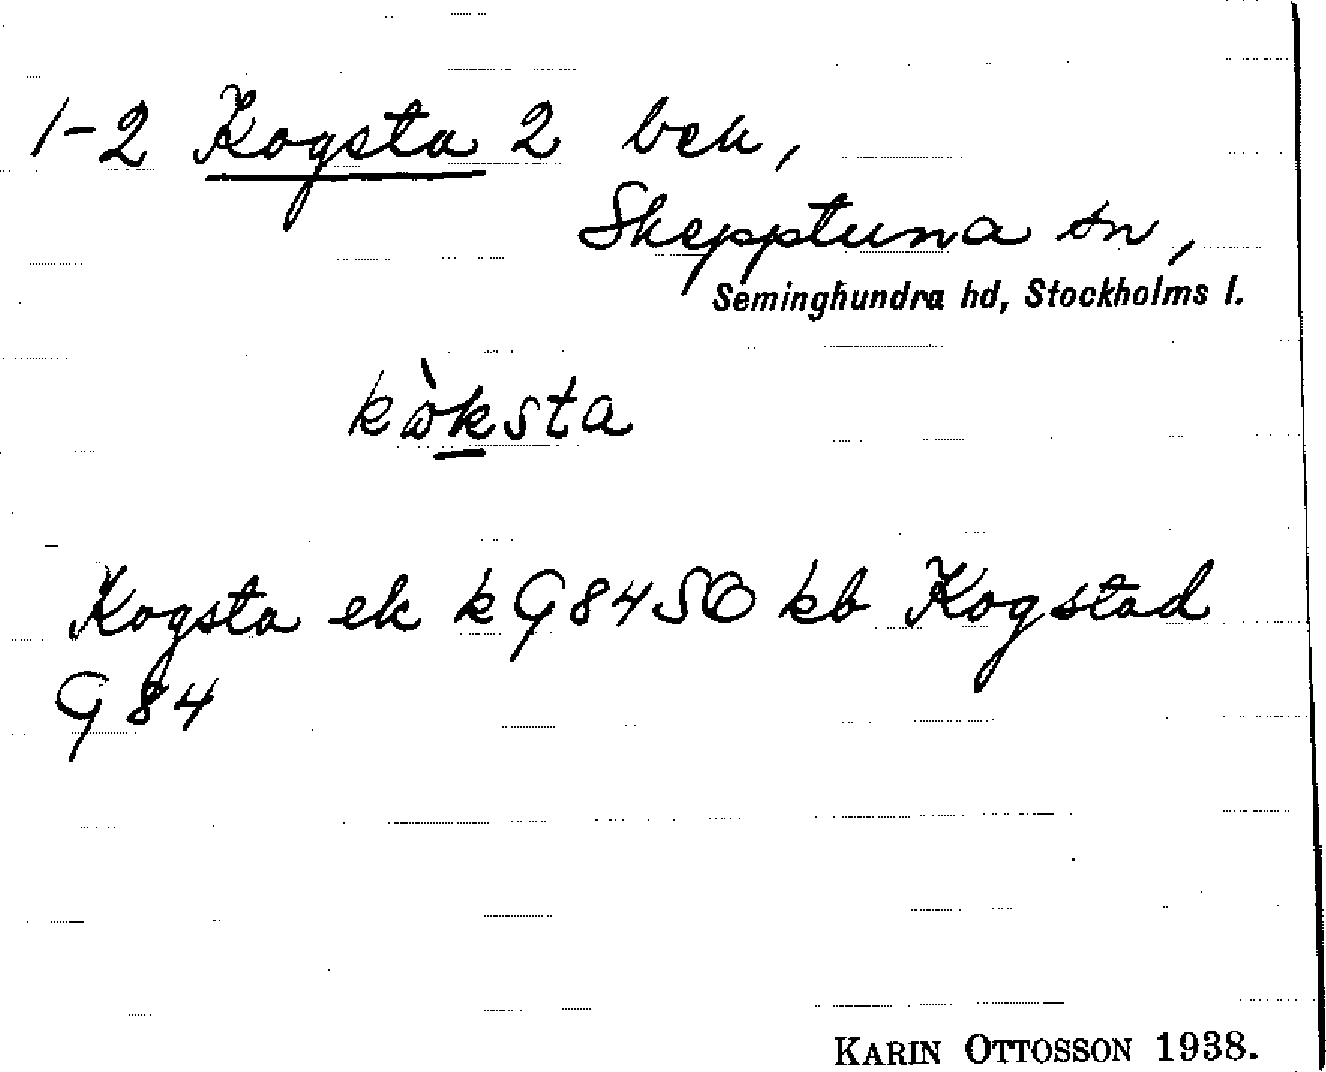 1-2 Kogsta 2 bek,
Skepptuna sn,
Seminghundra hd, Stockholms l.
kò̀ksta
Kogsta ek k G84 SO kb Kogstad
G84
KARIN OTTOSSON 1938.